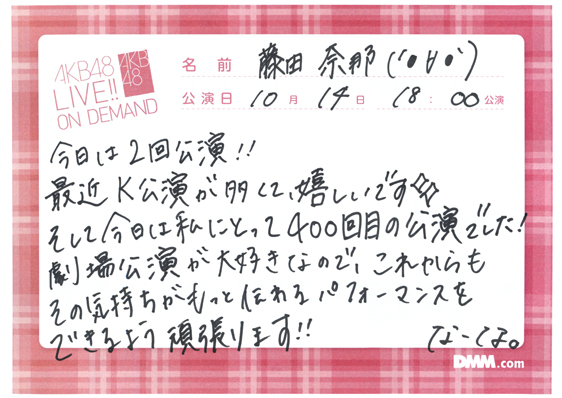 AKB48
LIVE!!
ON DEMAND
AKB
48
名前 藤田 奈那 ('●∀●')
公演日 10月 14日 18:00公演
今日は2回公演!!
最近K公演が多くて、嬉しいです☆☆
そして今日は私にとって400回目の公演でした!
劇場公演が大好きなので、これからも
その気持ちがもっと伝わるパフォーマンスを
できるよう頑張ります!!
なーな。
DMM.com